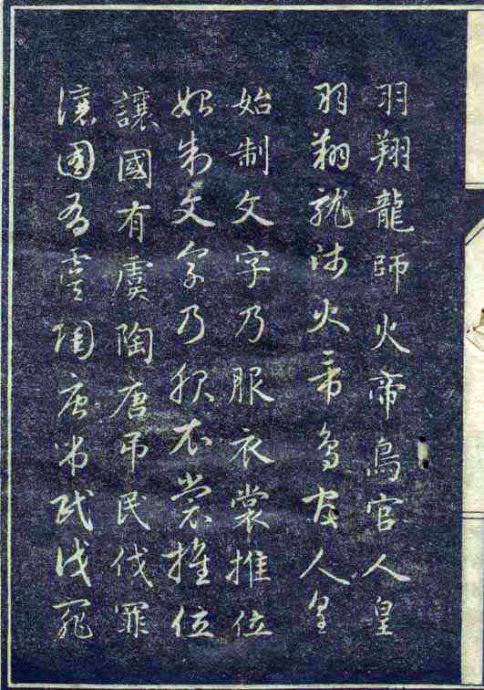 羽翔龍師火帝鳥官人皇
羽翔龍師火帝鳥官人皇
始制文字乃服衣裳推位
始制文字乃服衣裳推位
讓國有虞陶唐吊民伐罪
讓國有虞陶唐吊民伐罪